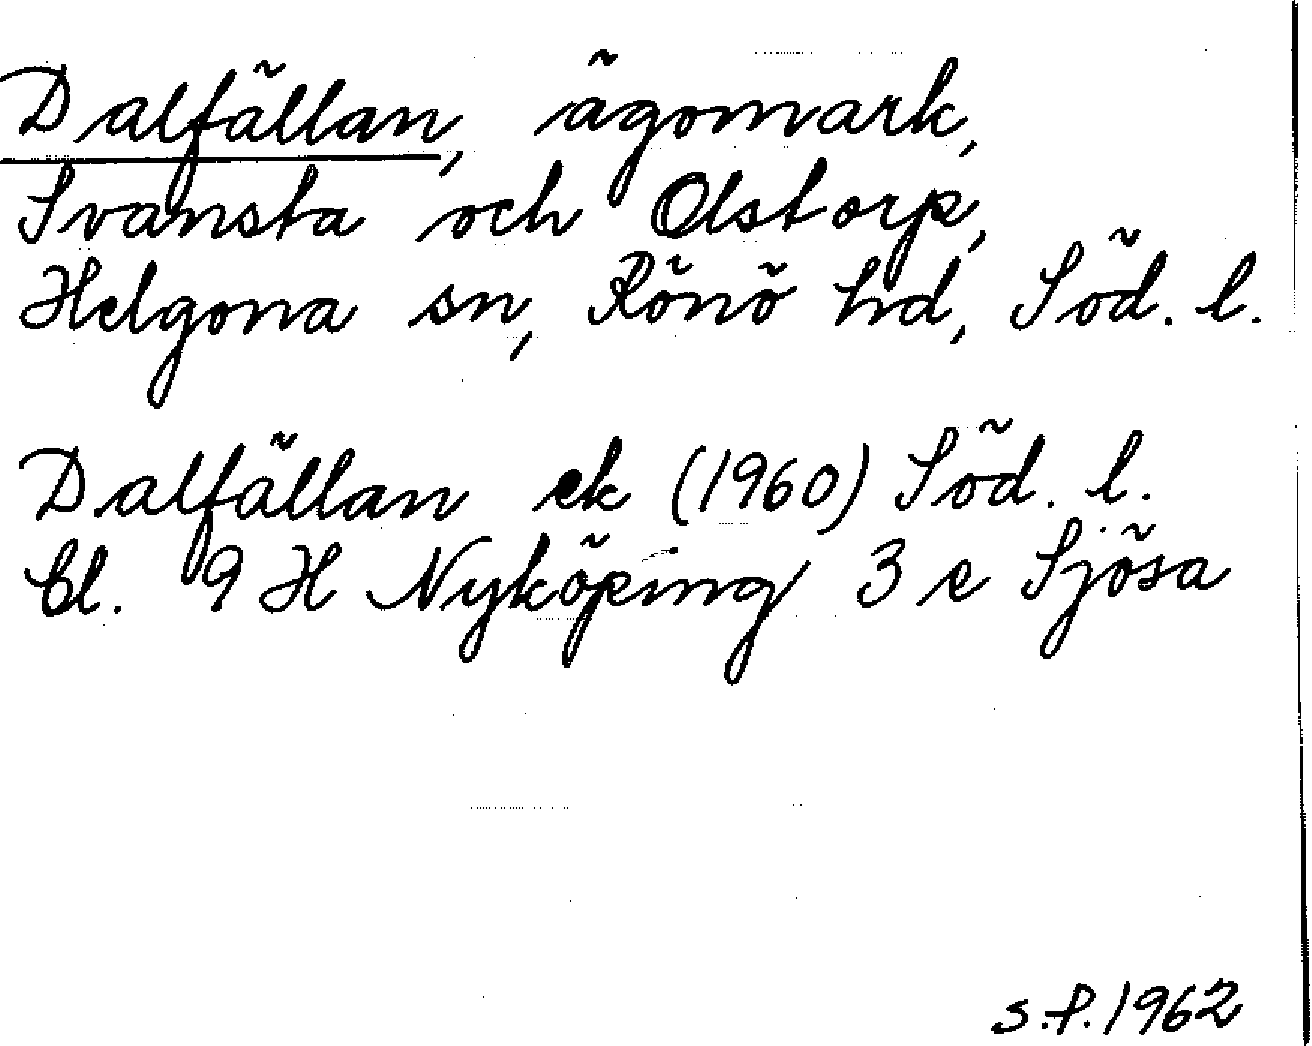 Dalfällan, ägomark,
Svansta och Olstorp,
Helgona sn, Rönö hd, Söd. l.
Dalfällan ek (1960) Söd. l.
bl. 9 H Nyköping 3 e Sjösa
S.P. 1962